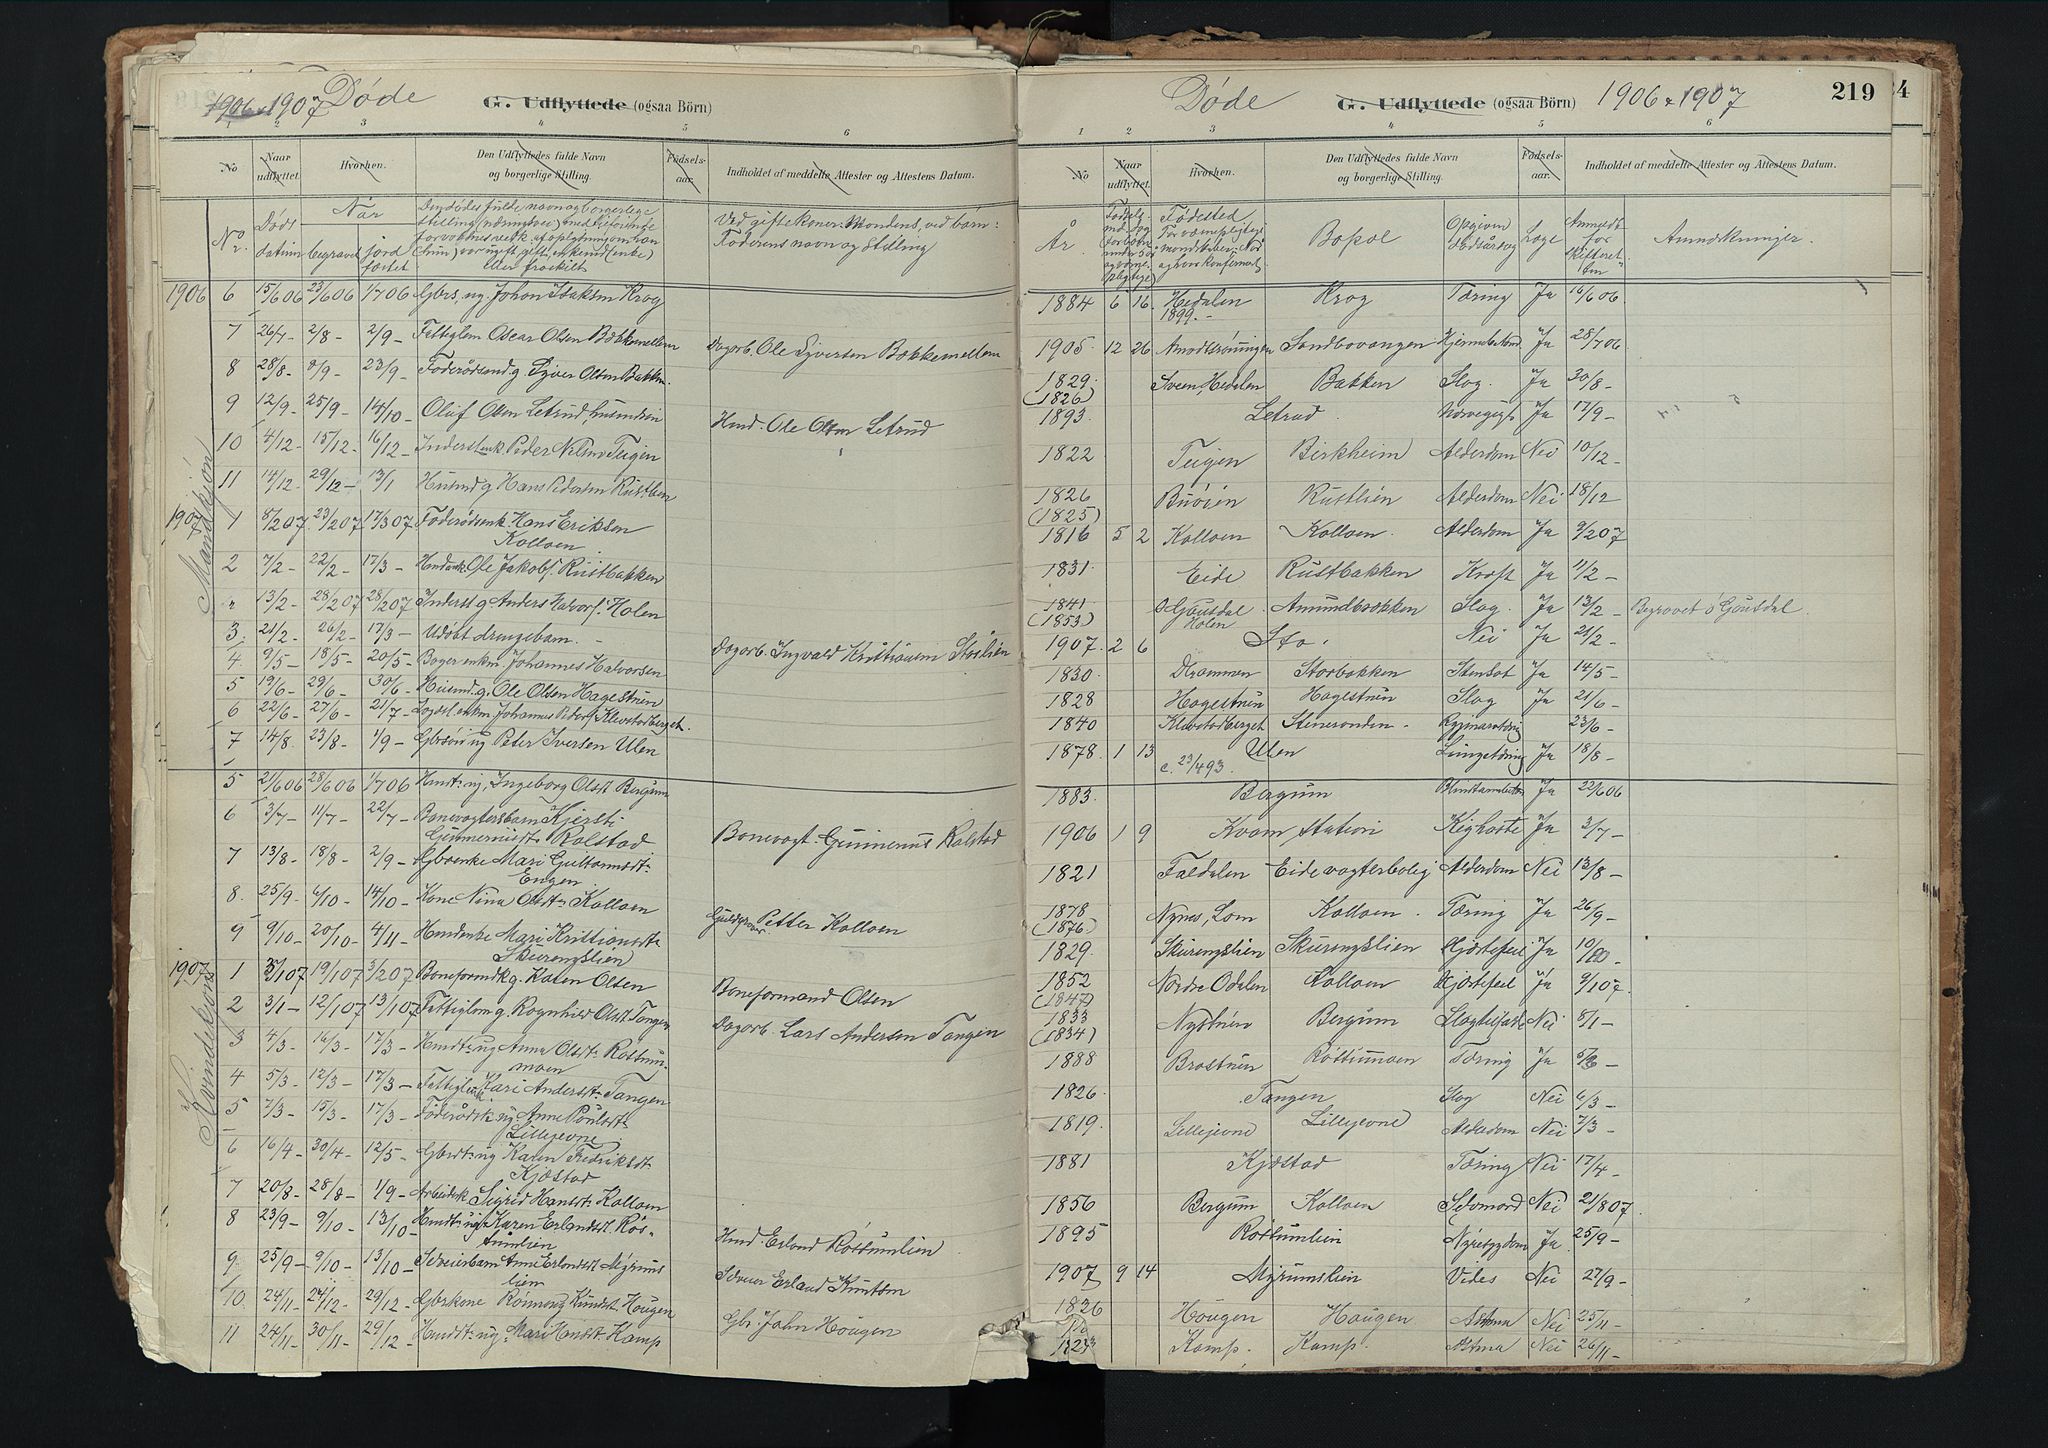 1906 & 1907 Døde G. Udflyttede (ogsaa Börn)
1 2 3 4 5 6
No Naar udflyttet. Hvorhen. Den Udflyttedes fulde Navn og borgerlige Stilling. Födsels-aar. Indholdet af meddelte Attester og Attestens Datum.
Nr. Døds datum Naar begravet jord fæstet
Ved gifte koner: Mandens, ved barn: Faderens navn og stilling
Mandkjøn
1906 6 15/606 23/606 1/706 Gbrs. ug. Johan Isaksen Krog
7 26/7 - 2/8 - 2/9 - Fattiglem Oscar Olsen Bækkemellem Dagarb. Ole Syversen Bækkemellem
8 28/8 - 8/9 - 23/9 - Føderaadsmand g Syver Olsen Bakken
9 12/9 - 25/9 - 14/10 - Oluf Olsen Letrud, husmdsøn Hmd. Ole Olsen Letrud
10 4/12 - 15/12 - 16/12 Inderst enk. Peder Nilsen Teigen
11 14/12 - 29/12 - 13/1 Husmd g Hans Pedersen Rustlien
1907 1 8/207 23/207 17/307 Føderaadsenk. Hans Eriksen
Kolloen
2 7/2 - 22/2 - 17/3 - Hmd enk. Ole Jakobs. Rustbakken
13/2 - 28/207 28/207 Inderst g Anders Halvors. Holen
3 21/2 - 26/2 - 17/3 - Udøbt drengebarn. - Dagarb. Ingvald Kristiansen Stoslien
4 9/5 - 18/5 - 20/5 - Bager enkm. Johannes Halvorsen
5 19/6 - 29/6 - 30/6 - Husmd. g. Ole Olsen Hagestuen
6 22/6 - 27/6 - 21/7 - Lægdsl. enkm Johannes Peders. Klevstadberget.
7 14/8 23/8 - 1/9 - Gbrsøn ug Peter Iversen Ulen
Kvindekjøn
5 21/606 28/606 1/706 Hmdt. ug, Ingeborg Olsdt Bergum
6 3/7 - 11/7 - 22/7 - Banevogtersbarn Kjersti
Gunnerusdt Ralstad Banevogt. Gunnerius Ralstad
7 13/8 - 18/8 - 2/9 - Gbr enke Mari Guttormsdt.
Engen
8. 25/9 - 6/10 - 14/10 - Kone Nina Olsdt. Kolloen Guldsmed Petter Kolloen
9 9/10 - 20/10 - 4/11 - Hmdenke Mari Kristiansdt
Skurengslien
1907 1 3/107 19/107 3/207 Baneformdk g. Karen Olsen Baneformand Olsen
2 3/1 - 12/107 13/107 Fattiglem g. Rognhild Olsdt Tangen Dagarb. Lars Andersen Tangen
3 4/3 - 16/3 - 17/3 - Hmdt. ug Anna Olsdt. Røstum-
moen
4 5/3 - 12/3 - 17/3 - Fattiglem Kari Andersdt. Tangen
5 7/3 - 15/3 - 17/3 - Føderådsk. ug Anne Poulsdt.
Lillejevne
6 16/4 - 30/4 - 12/5 - Gbrdt. ug Karen Fredriksdt.
Kjøstad
7 20/8 - 28/8 - 1/9 - Arbeidsk Sigrid Hansdt. Kolloen
8 23/9 - 9/10 - 13/10 - Hmdt. ug Karen Erlandsdt. Røs-
tumlien Hmd. Erland Røstumlien
9 25/9 - 9/10 - 13/10 - Sveierbarn Anne Erlandsdt Myrums
lien Sveier Erland Knutsen
10. 24/11 - 24/12 - 29/12 - Gbrkone Rønnaug Knudsdt Hougen Gbr. John Hougen
11 24/11 - 30/11 - 29/12 - Hmdt. ug. Mari Hansdt. Kamp
Døde G. Udflyttede (ogsaa Börn) 1906 & 1907 219
1 2 3 4 5 6
No Naar udflyttet. Hvorhen. Den Udflyttedes fulde Navn og borgerlige Stilling. Födsels-aar. Indholdet af meddelte Attester og Attestens Datum.
År Fødested Bopæl Opgiven dødsårsag Læge Anmeldt for skifteretten Anmærkninger.
1884 6 16 Hedalen Krog Tæring Ja 16/606
1899. -
1905 12 26 Amodtsrøningen Sandbovangen Ja 28/706
1829 Sveen, Hedalen Bakken Slag. Ja 30/8 -
(1826)
1893. Letrud Ja 17/9 -
1822 Teigen Birkheim Alderdom Nei 10/12 -
1826 Buøien Rustlien Alderdom Nei 18/12
(1825)
1816 5 2 Kolloen Kolloen. Alderdom Ja 9/207
1831 Eide Rustbakken Kræft Ja 11/2 -
1841 Ø Gausdal Amundbakken Slag. Ja 13/2 - Begravet Ø Gausdal.
(1853) Holen
1907. 2 6 Sto. Nei Ja 21/2 -
1830 Drammen Storbakken Stensot Ja 14/5 -
1828 Hagestuen Hagestuen Slag Ja 21/6 -
1840 Klevstadberget Stensranden - Rygmarvtæring 23/6 -
1878. 1 13 Ulen Lungetæring Ja 18/8 -
c. 23/493.
1883. Bergum Ja 22/606
1906 1 9 Kvam Station Kighoste Ja 3/7 -
1821 Faldalen Eide vogterbolig Alderdom Nei 13/8 -
1878 Nynes, Lom Kolloen. Tæring Ja 26/9 -
(1876)
1829 Skurengslien Skurengslien Hjertefeil Ja 10/10 -
1852 Nordre Odalen Kolloen Hjertefeil Ja 9/107.
(1847)
1833 Nystuen Bergum Slagtilfælde Nei 8/1 -
(1834)
1888 Brostuen Røstumoen Tæring Ja 5/3 -
1826 Tangen Slag Nei 6/3 -
1819. Lillejevne Lillejevne Alderdom Nei 7/3 -
1881 Kjøstad Tæring Nei 17/4 -
1856 Bergum Kolloen Selvmord Nei 21/807
1895 Røstumlien Nyresygdom Ja 25/9 -
1907 9 14 Myrumslien Vides Nei 27/9 -
1826 Hougen Haugen Astma Nei 25/11 -
1823 Kamp. Kamp. Astma Nei 26/11 -